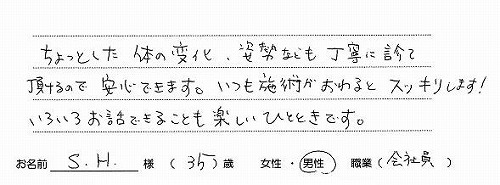 ちょっとした体の変化、姿勢なども丁寧に診て
頂けるので安心できます。いつも施術がおわるとスッキリします!
いろいろお話できることも楽しいひとときです。
お名前 S.H. 様 (35)歳 女性・男性 職業(会社員)